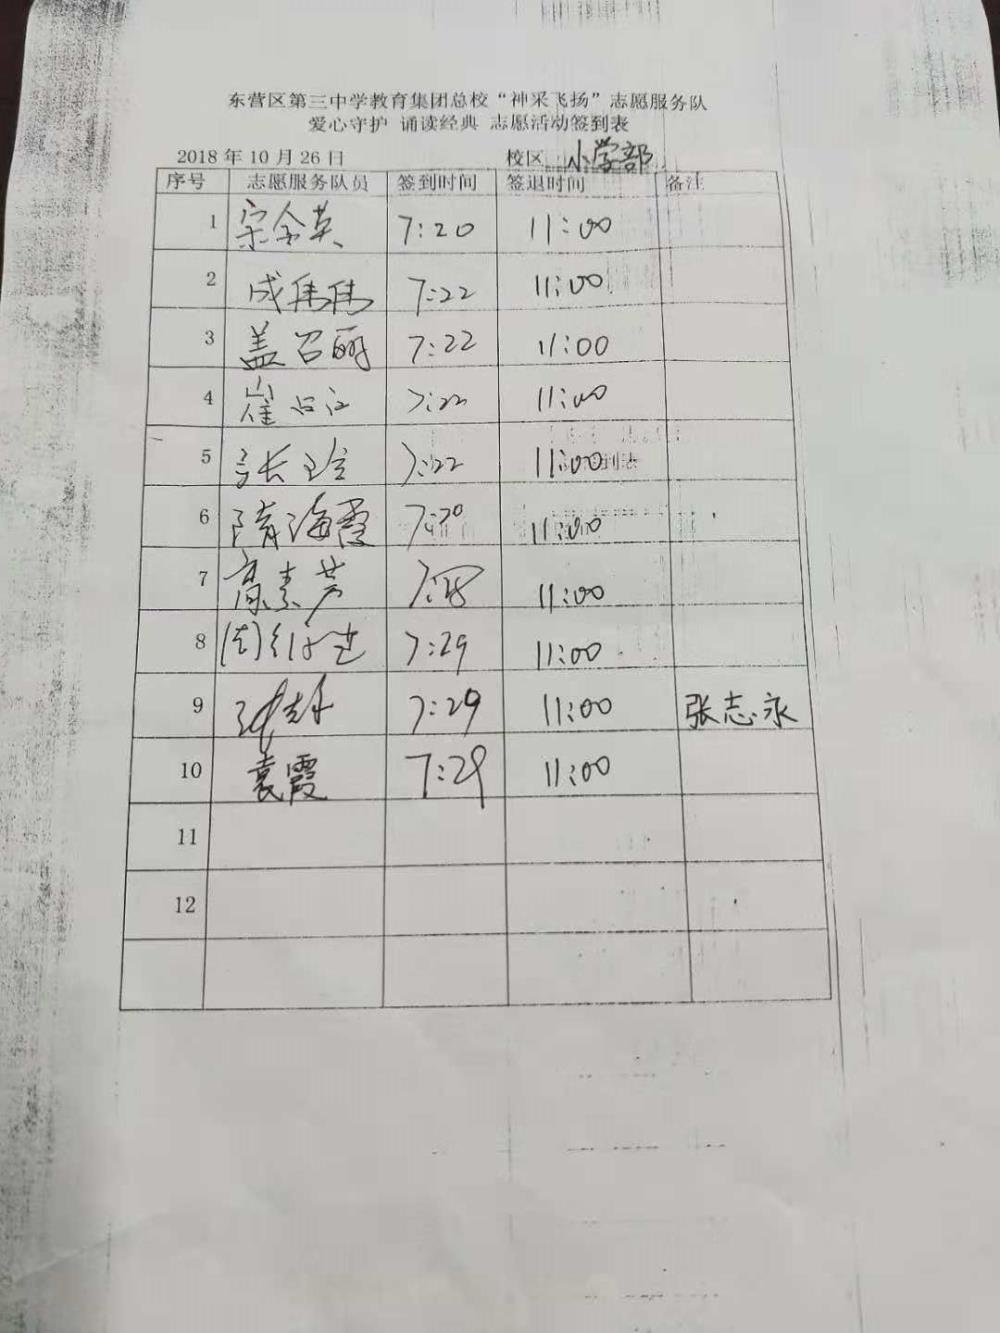 东营区第三中学教育集团总校“神采飞扬”志愿服务队
爱心守护 诵读经典 志愿活动签到表
2018年10月26日 校区 小学部
序号 志愿服务队员 签到时间 签退时间 备注
1 宋金英 7:20 11:00
2 成伟伟 7:22 11:00
3 盖召丽 7:22 11:00
4 崔 7:22 11:00
5 张 7:22 11:00
6 隋海霞 11:00
7 高素芳 7:28 11:00
8 7:29 11:00
9 7:29 11:00 张志永
10 袁霞 7:29 11:00
11
12